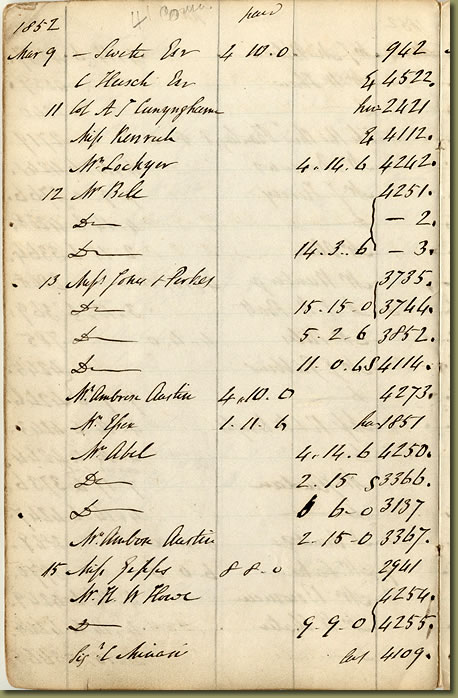 paid
1852
Mar 9 — Esqr 4 10. 0 942
C Esqr Ex 4522.
11 Col A T Cunyngham 2421
Miss Kenrick Ex 4112.
Mr Lockyer 4. 14. 6 4242.
12 Mr Bell 4251.
Do — 2.
Do 14. 3. 6 — 3.
13 Miss Jones & Perkes 3735.
Do 15. 15. 0 3744.
Do 5. 2. 6 3852.
Do 11. 0. 6 S 4114.
Mr Ambrose Austin 4. 10. 0 4273.
Mr 1. 11. 6 1851
Mr Abel 4. 14. 6 4250.
Do 2. 15 S 3366.
Do 6 6 – 0 3137
Mr Ambose Austin 2. 15 – 0 3367.
15 Miss 8 8. 0 2941
Mr H. W Howe 4254.
Do 9. 9. 0 4255.
Sigr C Minasi 4109.